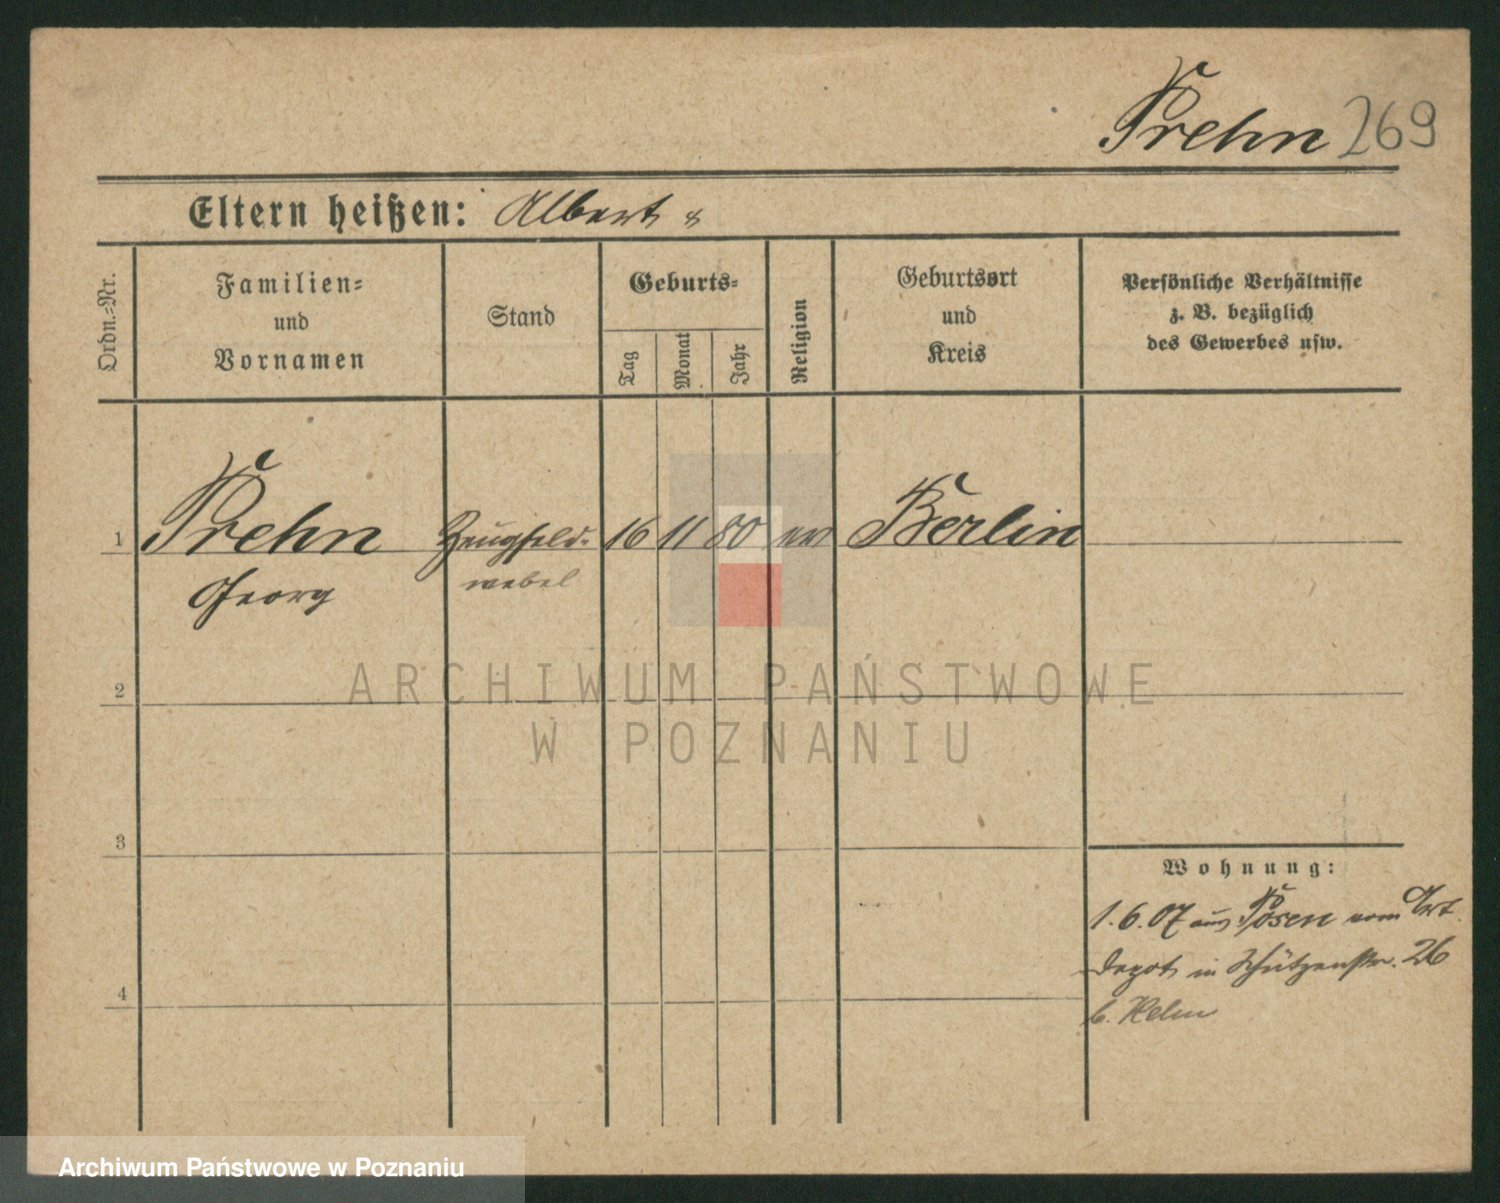 Prehn 269
Eltern heißen: Albert &
Ordn.-Nr.
Familien-
und
Vornamen
Stand
Geburts-
Tag
Monat
Jahr
Religion
Geburtsort
und
Kreis
Persönliche Verhältnisse
z. B. bezüglich
des Gewerbes usw.
1 Prehn Zeugfeld- 16 11 80 ev Berlin
Georg webel
2
ARCHIWUM PAŃSTWOWE
W POZNANIU
3
Wohnung:
1.6.07 aus Posen vom Art.
Depot in Schützenstr. 26
4
b.
Archiwum Państwowe w Poznaniu